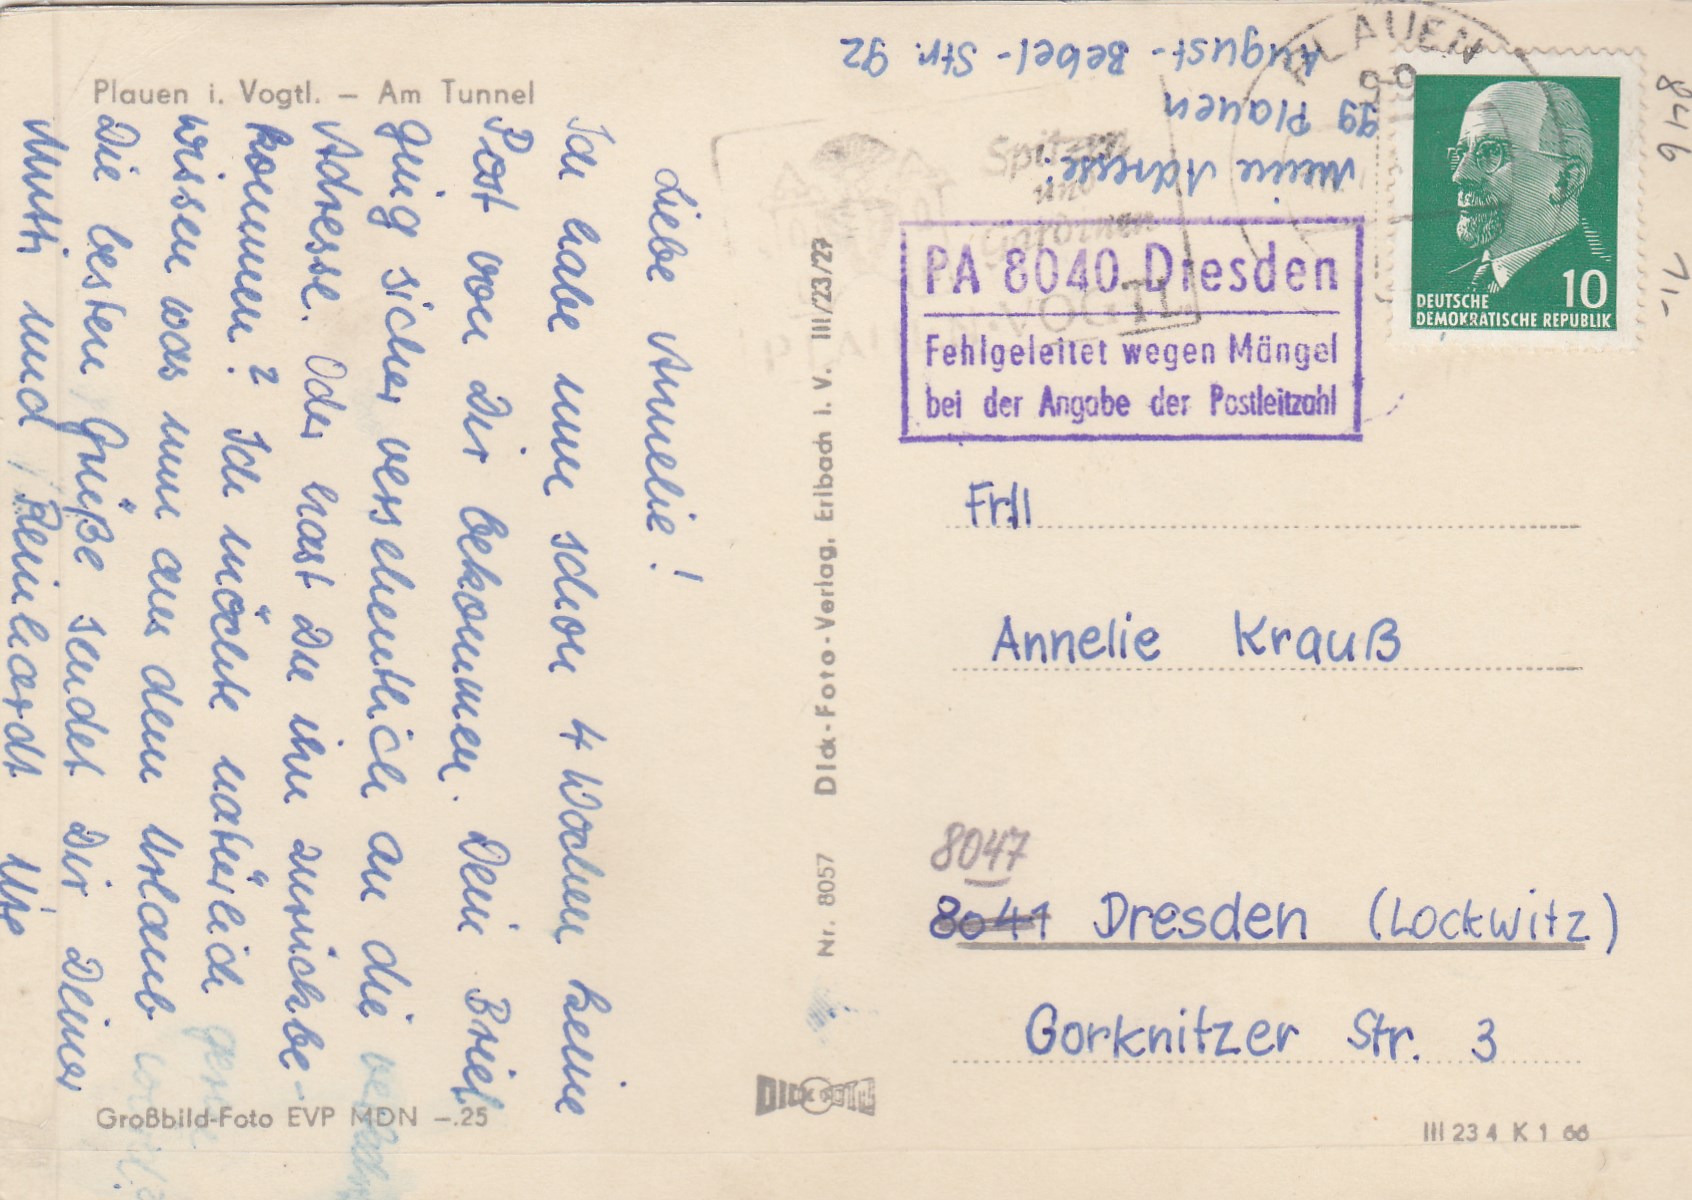 Plauen i. Vogtl. – Am Tunnel
Liebe Annelie!
Ich habe nun schon 4 Wochen keine
Post von Dir bekommen. Dein Brief
ging sicher versehentlich an die
Adresse. Oder hast Du ihn zurückbe-
kommen? Ich möchte natürlich gern
wissen was nun aus dem Urlaub wird!
Die besten Grüße sendet Dir Deine
Mutti und Reinhardt Ute
Großbild-Foto EVP MDN –.25
Nr. 8057 Dick-Foto-Verlag, Erlbach i. V. III/23/27
DICK FOTO
Meine Adresse:
99 Plauen
August-Bebel-Str. 92
PLAUEN
99
Spitzen
und
Gardinen
PLAUEN·VOGTL
DEUTSCHE
DEMOKRATISCHE REPUBLIK
10
846
71,-
PA 8040 Dresden
Fehlgeleitet wegen Mängel
bei der Angabe der Postleitzahl
Frll
Annelie Krauß
8047
8041 Dresden (Lockwitz)
Gorknitzer Str. 3
III 23 4 K 1 66